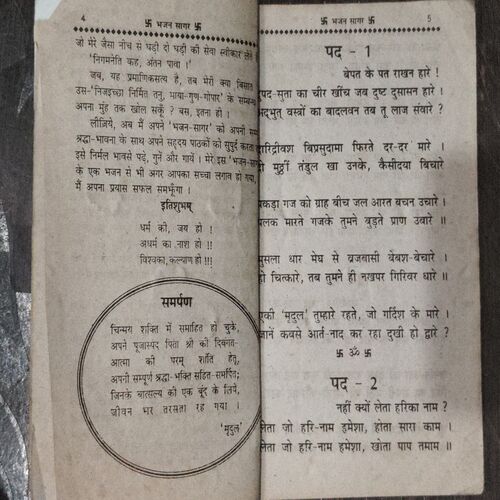 4 卐 भजन सागर 卐
जो मेरे जैसा नीच से घड़ी दो घड़ी की सेवा स्वीकार लेते
'निगमनेति कह, अंतन पावा ।'
जब, यह प्रमाणिकसत्य है, तब मेरी क्या बिसात
उस-'निजइच्छा निर्मित तनु, माया-गुण-गोपार' के सम्बन्ध
अपना मुंह तक खोल सकूँ ? बस, इतना ही ।
लीज़िये, अब मैं अपने 'भजन-सागर' को अपनी सम्पूर्ण
श्रद्धा-भावना के साथ आप सहृदय पाठकों को सुपुर्द करता
इसे निर्मल भावसे पढ़े, गुनें और गायें । मेरे इस 'भजन-सागर
के एक भजन से भी अगर आपका सच्चा लगाव हो गया,
मैं अपना प्रयास सफल समभूँगा ।
इतिशुभम्
धर्म की, जय हो !
अधर्म का, नाश हो !!
विश्वका, कल्याण हो !!!
समर्पण
चिन्मय शक्ति में समाहित हो चुके,
अपने पूजास्पद पिता श्री की दिवंगत-
आत्मा की परम् शांति हेतु,
अपनी सम्पूर्ण श्रद्धा-भक्ति सहित-समर्पित;
जिनके बात्सल्य की एक बूंद के लिये,
जीवन भर तरसता रह गया ।
'मृदुल'
卐 भजन सागर 卐 5
पद - 1
बेपत के पत राखन हारे !
द्रुपद-सुता का चीर खींच जब दुष्ट दुसासन हारे ।
अद्‌भुत् वस्त्रों का बादलवन तब तू लाज संवारे ?
दारिद्रीवश बिप्रसुदामा फिरते दर-दर' मारे ।
दो मुठ्ठीं तंडुल खा उनके, कैसीदया बिचारे
पकड़ा गज को ग्राह बीच जल आरत बचन उचारे ।
पलक मारते गजके तुमने बुड़ते प्राण उवारे ॥
मुसला धार मेघ से ब्रजवासी बेबश-बेचारे ।
हो चित्कारे, तब तुमने ही नखपर गिरिवर धारे ॥
एकी 'मृदुल' तुम्हारे रहते, जो गर्दिश के मारे ।
जानें कबसे आर्त-नाद कर रहा दुखी हो द्वारे ?
卐 ॐ 卐
पद - 2
नहीं क्यों लेता हरिका नाम ?
लेता जो हरि-नाम हमेशा, होता सारा काम ।
लेता जो हरि-नाम हमेशा, खोता पाप तमाम ॥